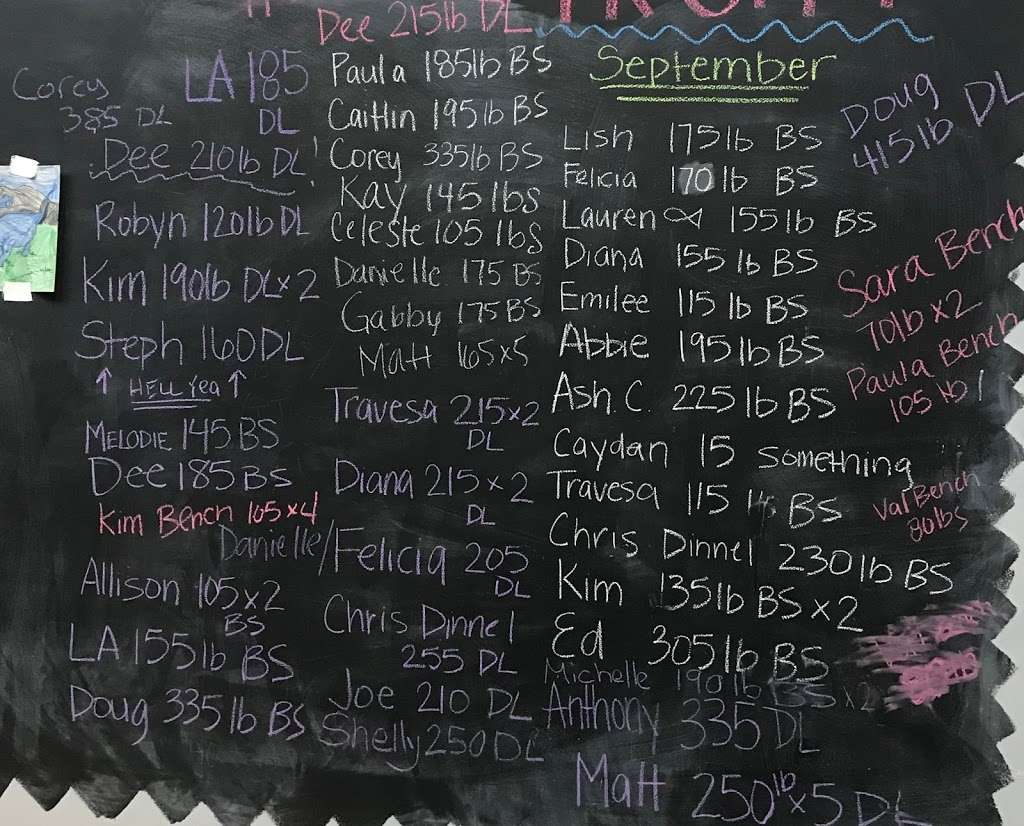 Dee 215lb DL
Corey
385 DL
LA 185
DL
Dee 210lb DL!
Robyn 120lb DL
Kim 190lb DL x 2
Steph 160 DL
↑ HELL Yea ↑
MELODIE 145 BS
Dee 185 BS
Kim Bench 105 x 4
Allison 105 x 2
BS
LA 155lb BS
Doug 335lb BS
Paula 185lb BS
Caitlin 195lb BS
Corey 335lb BS
Kay 145 lbs
Celeste 105 lbs
Danielle 175 BS
Gabby 175 BS
Matt 165 x 5
Travesa 215 x 2
DL
Diana 215 x 2
DL
Danielle/Felicia 205
DL
Chris Dinnel
255 DL
Joe 210 DL
Shelly 250 DL
September
Lish 175lb BS
Felicia 170lb BS
Lauren 155lb BS
Diana 155 lb BS
Emilee 115 lb BS
Abbie 195 lb BS
Ash. C. 225 lb BS
Caydan 15 something
Travesa 115 lb BS
Chris Dinnel 230lb BS
Kim 135lb BS x 2
Ed 305lb BS
Michelle 190lb BS x 2
Anthony 335 DL
Matt 250lb x 5 DL
Doug
415lb DL
Sara Bench
70lb x 2
Paula Bench
105 lb!
Val Bench
80lbs